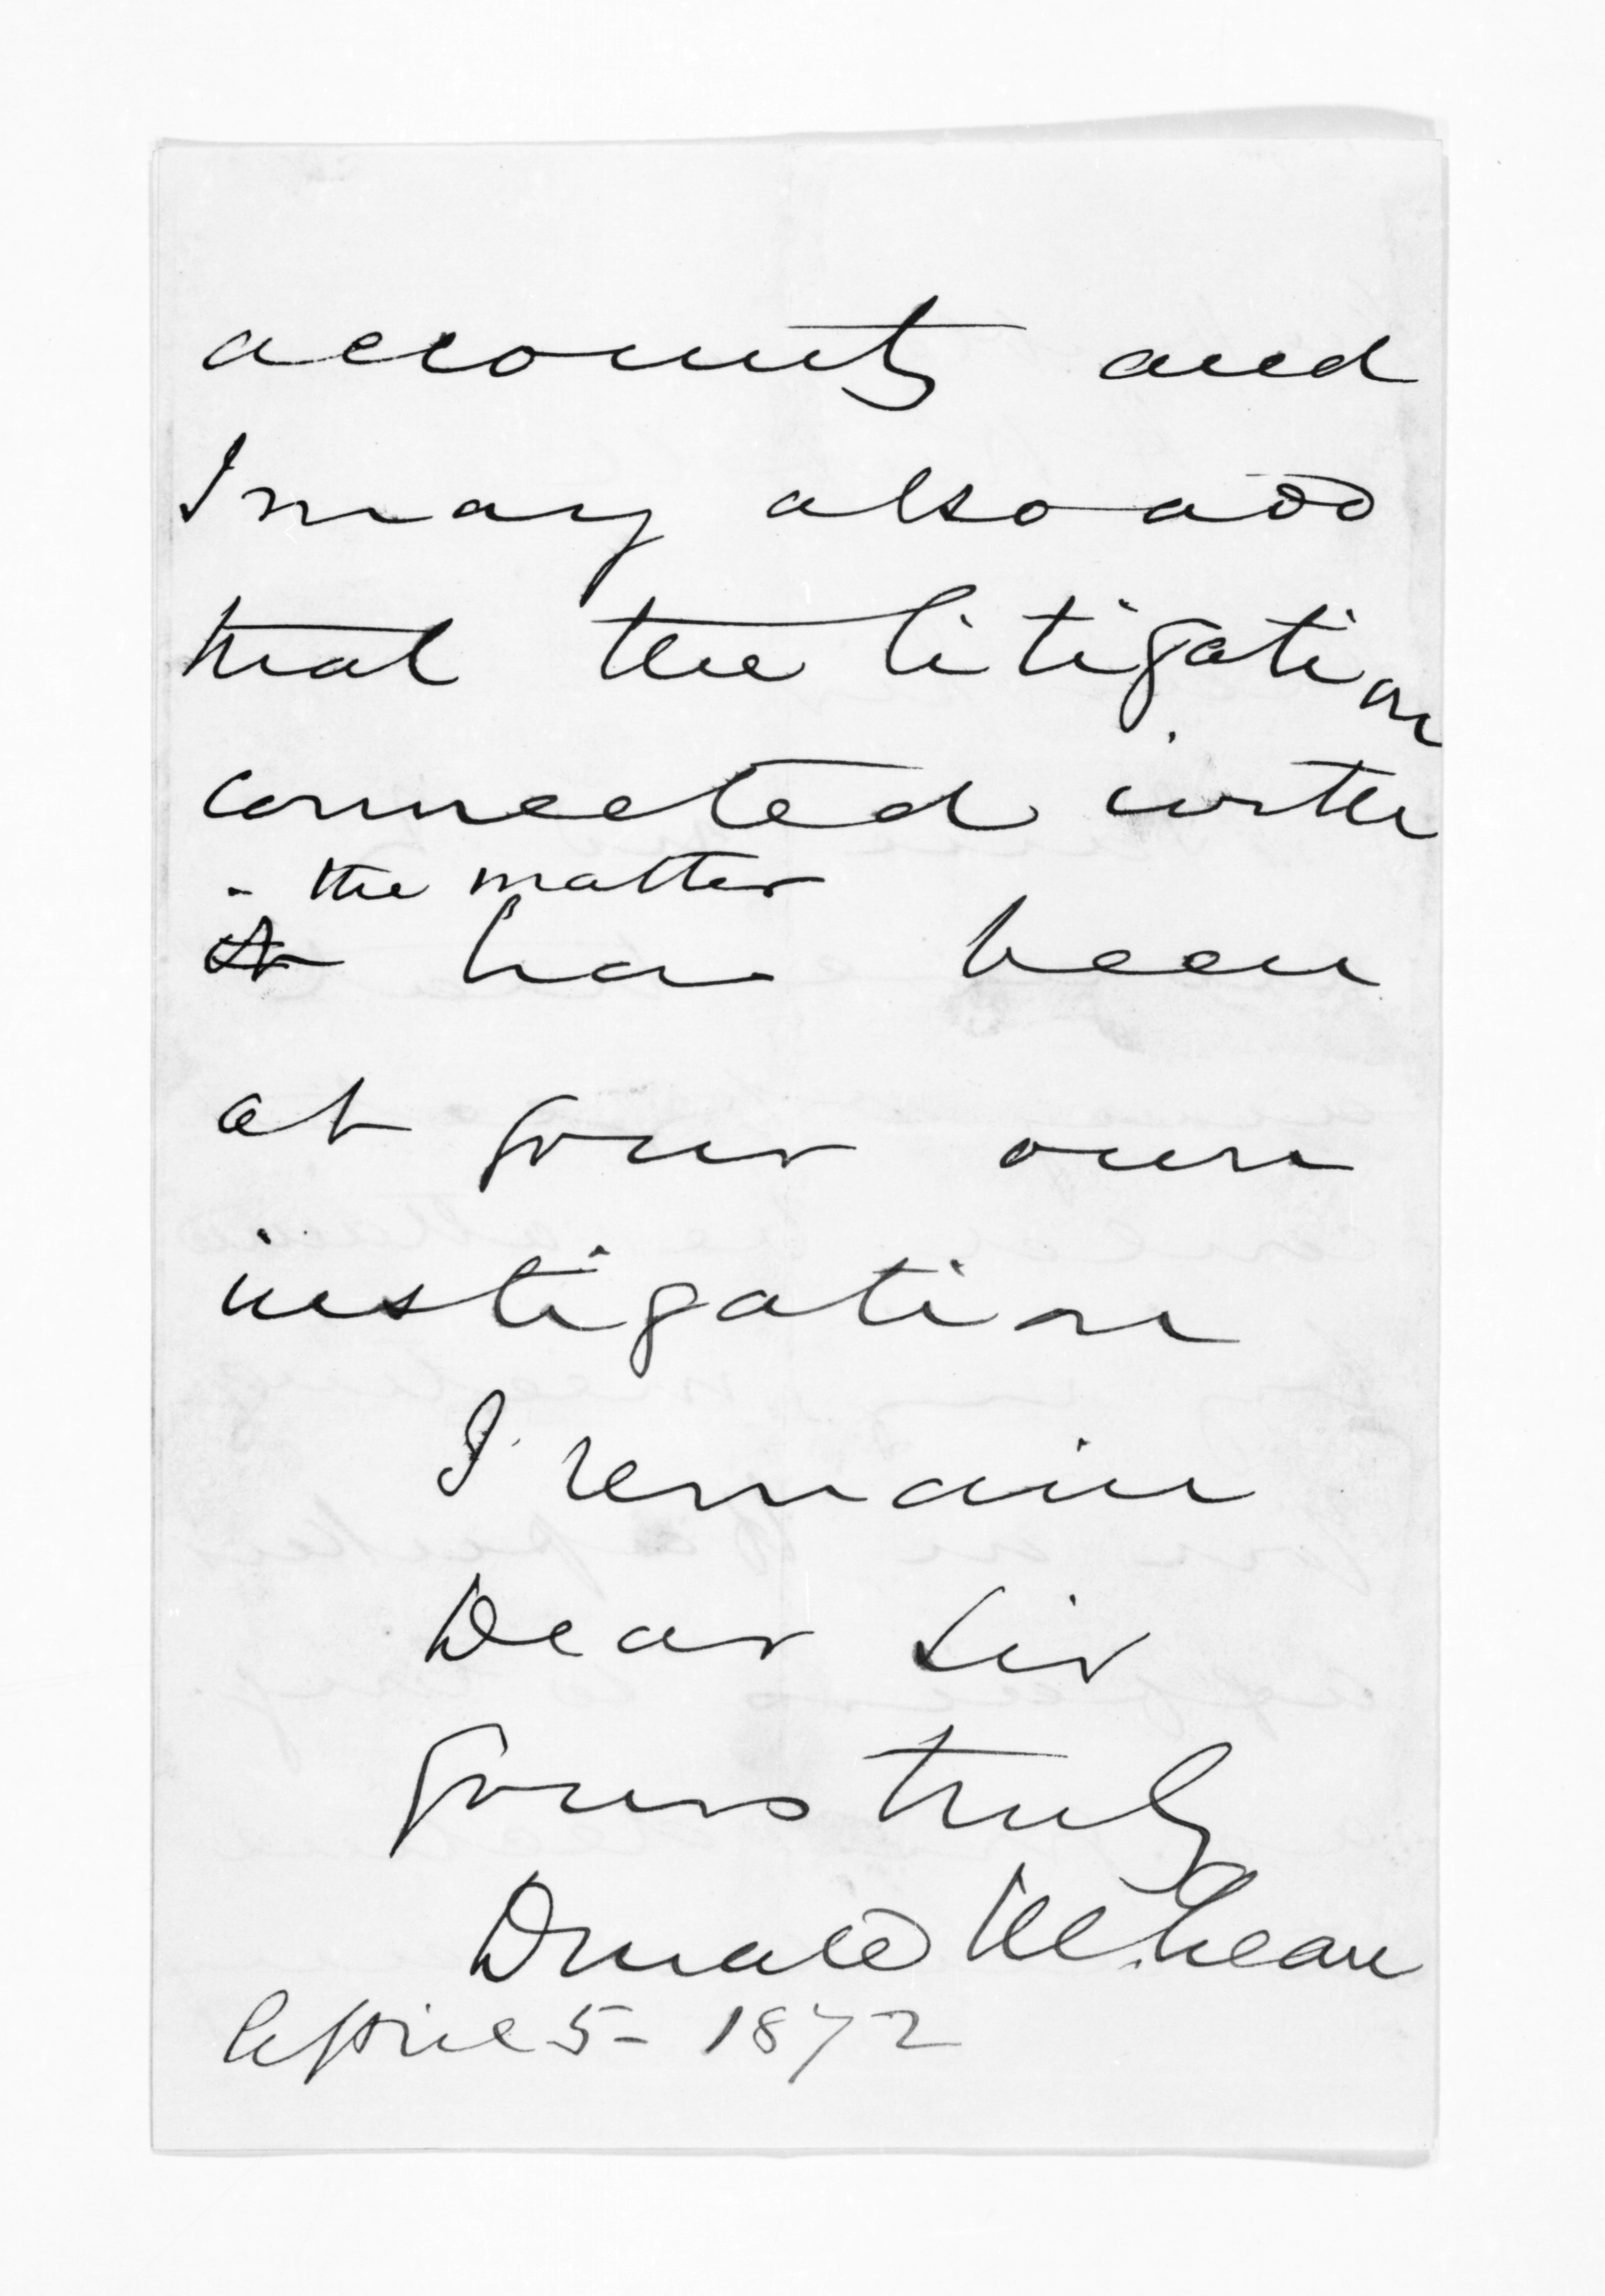 accounts and
I may also add
that the litigation
connected with
the matter
it has been
at your own
instigation
I remain
Dear Sir
Yours truly
Donald McLean
April 5 - 1872